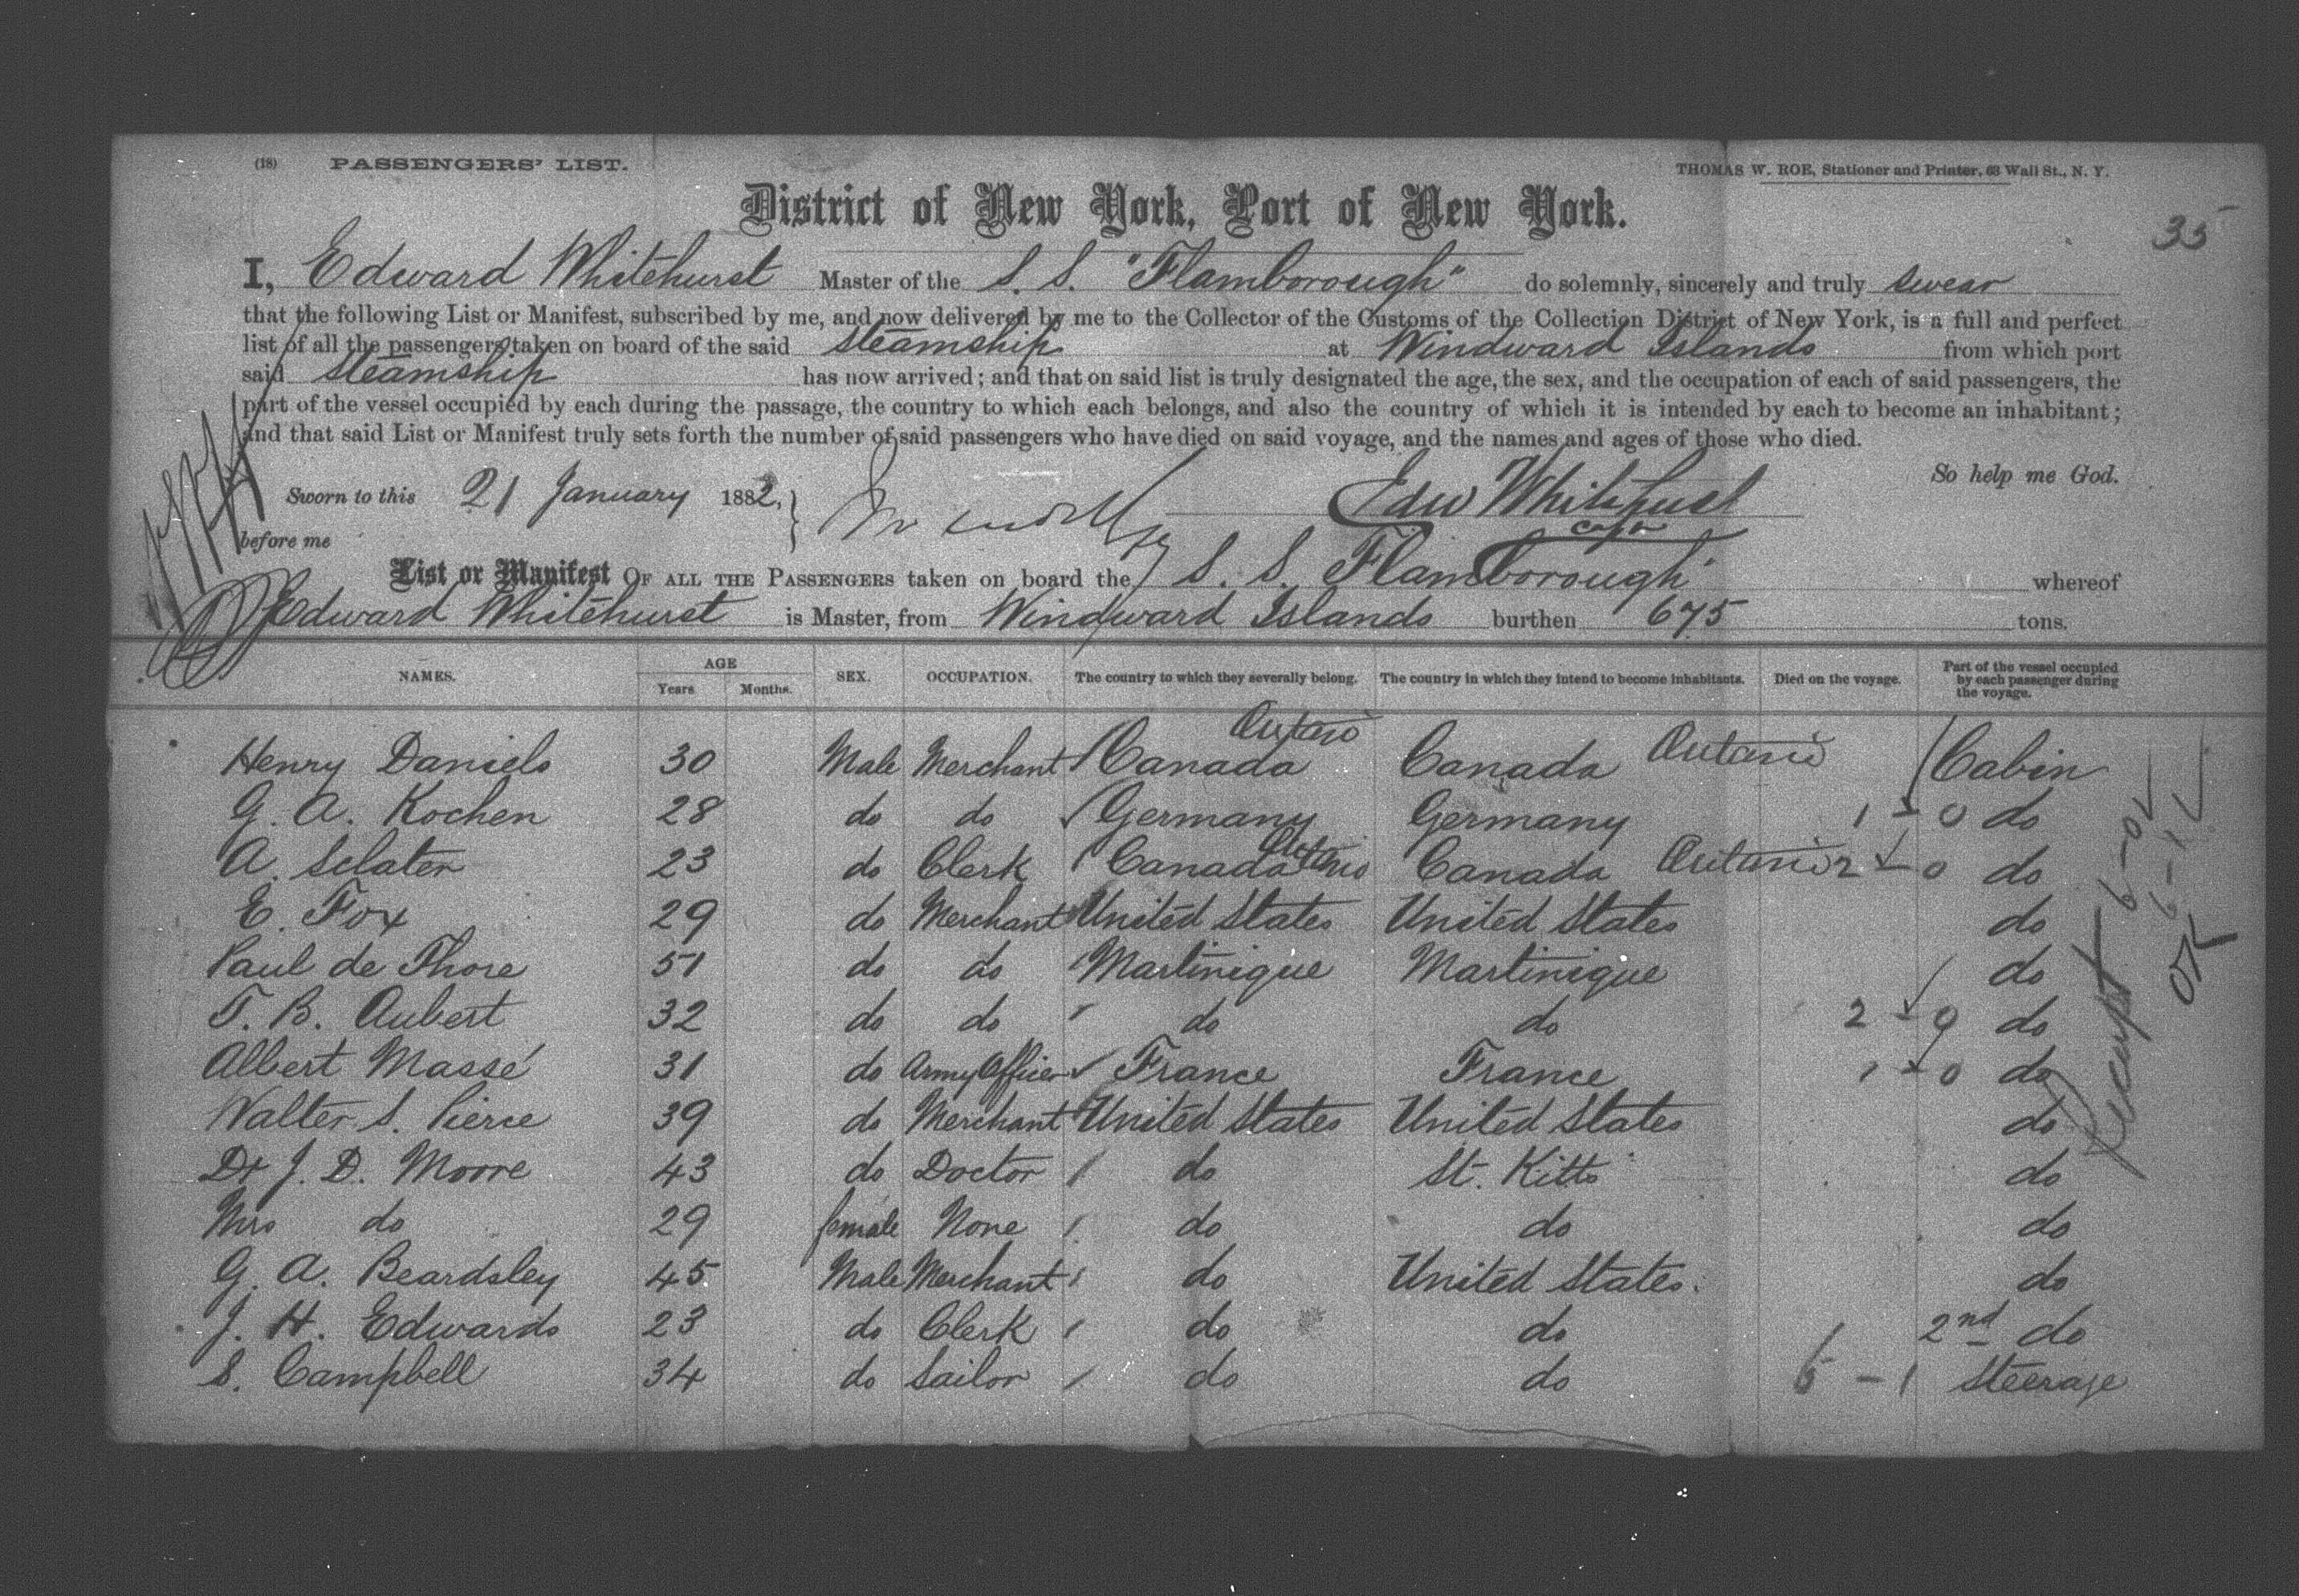 (18) PASSENGERS' LIST. THOMAS W. ROE, Stationer and Printer, 63 Wall St., N. Y.
District of New York, Port of New York.
35
I, Edward Whitehurst Master of the S. S. "Flamborough" do solemnly, sincerely and truly swear
that the following List or Manifest, subscribed by me, and now delivered by me to the Collector of the Customs of the Collection District of New York, is a full and perfect
list of all the passengers taken on board of the said Steamship at Windward Islands from which port
said Steamship has now arrived; and that on said list is truly designated the age, the sex, and the occupation of each of said passengers, the
part of the vessel occupied by each during the passage, the country to which each belongs, and also the country of which it is intended by each to become an inhabitant;
and that said List or Manifest truly sets forth the number of said passengers who have died on said voyage, and the names and ages of those who died.
So help me God.
Sworn to this 21 January 1882, Edw Whitehurst
before me
List or Manifest OF ALL THE PASSENGERS taken on board the S. S. Flamborough whereof
Edward Whitehurst is Master, from Windward Islands burthen 675 tons.
NAMES. AGE Years Months. SEX. OCCUPATION. The country to which they severally belong. The country in which they intend to become inhabitants. Died on the voyage. Part of the vessel occupied by each passenger during the voyage.
Henry Daniels 30 Male Merchant Canada Ontario Canada Ontario Cabin
G. A. Kochen 28 do do Germany Germany 1 - 0 do
A. Sclater 23 do Clerk Canada Ontario Canada Ontario 2 - 0 do
E. Fox 29 do Merchant United States United States do
Paul de Thore 51 do do Martinique Martinique do
T. B. Aubert 32 do do do do 2 - 0 do
Albert Massé 31 do Army Officer France France 1 - 0 do
Walter S. Pierce 39 do Merchant United States United States do
Dr J. D. Moore 43 do Doctor do St. Kitts do
Mrs do 29 female None do do do
G. A. Beardsley 45 Male Merchant do United States. do
J. H. Edwards 23 do Clerk do do 2nd do
S. Campbell 34 do Sailor do do 6 - 1 Steerage
6-0
6-1
OK